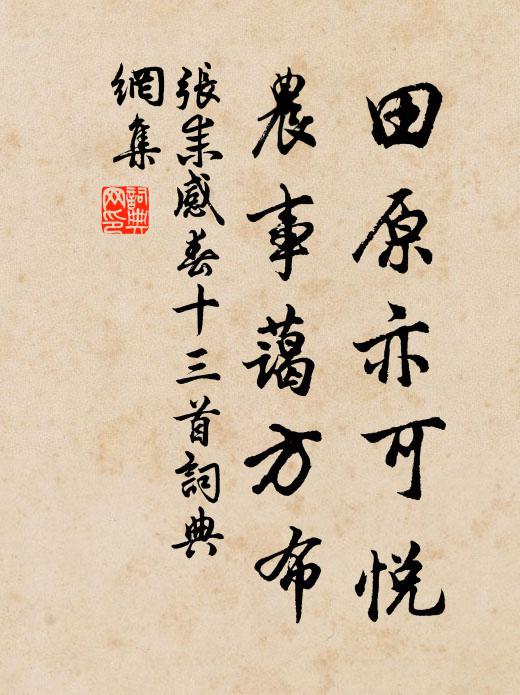 田原亦可悅
農事藹方布
張耒感春十三首詞典
網集
詞典
网印